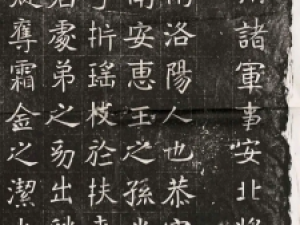 諸軍事安北將
洛陽人也恭宗
南安惠王之孫
折瑤枝於扶
處弟之幼出
奪霜金之潔